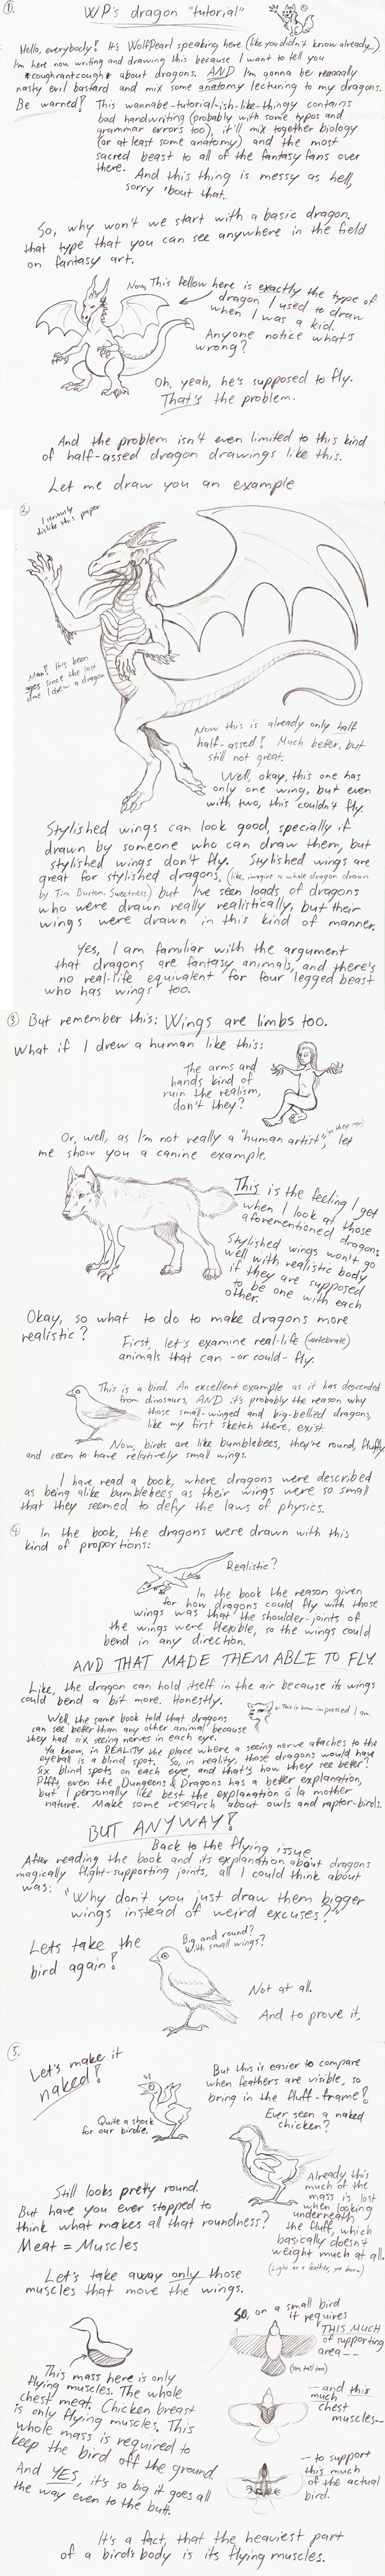 ①
WP's dragon "tutorial"
Hello, everybody! It's WolfPearl speaking here (like you didn't know already..)
I'm here now writing and drawing this because I want to tell you
*coughrantcough* about dragons. AND I'm gonna be reaaaally
nasty evil bastard and mix some anatomy lecturing to my dragons.
Be warned! This wannabe-tutorial-ish-like-thingy contains
bad handwriting (probably with some typos and
grammar errors too), it'll mix together biology
(or at least some anatomy) and the most
sacred beast to all of the fantasy fans over
there.
And this thing is messy as hell,
sorry 'bout that..
So, why won't we start with a basic dragon.
that type that you can see anywhere in the field
on fantasy art.
Now, This fellow here is exactly the type of
dragon I used to draw
when I was a kid.
Anyone notice what's
wrong?
Oh, yeah, he's supposed to fly.
That's the problem.
And the problem isn't even limited to this kind
of half-assed dragon drawings like this.
Let me draw you an example
②
I seriously
dislike this paper
Man! It's been
ages since the last
time I drew a dragon
Now this is already only half
half-assed! Much better, but
still not great.
Well, okay, this one has
only one wing, but even
with two, this couldn't fly.
Stylished wings can look good, specially if
drawn by someone who can draw them, but
stylished wings don't fly. Stylished wings are
great for stylished dragons, (like, imagine a whole dragon drawn
by Tim Burton. Sweetness.) but I've seen loads of dragons
who were drawn really realistically, but their
wings were drawn in this kind of manner.
Yes, I am familiar with the argument
that dragons are fantasy animals, and there's
no real-life equivalent for four legged beast
who has wings too.
③ But remember this: Wings are limbs too.
What if I drew a human like this:
The arms and
hands kind of
ruin the realism,
don't they?
Or, well, as I'm not really a "human artist", (as they say) let
me show you a canine example.
This is the feeling I get
when I look at those
aforementioned dragons
Stylished wings won't go
well with realistic body
if they are supposed
to be one with each
other.
Okay, so what to do to make dragons more
realistic?
First, let's examine real-life (vertebrate)
animals that can -or could- fly.
This is a bird. An excellent example as it has descended
from dinosaurs, AND it's probably the reason why
those small-winged and big-bellied dragons,
like my first sketch there, exist.
Now, birds are like bumblebees, they're round, fluffy
and seem to have relatively small wings.
I have read a book, where dragons were described
as being alike bumblebees as their wings were so small
that they seemed to defy the laws of physics.
④ In the book, the dragons were drawn with this
kind of proportions:
Realistic?
In the book the reason given
for how dragons could fly with those
wings was that the shoulder-joints of
the wings were flexible, so the wings could
bend in any direction.
AND THAT MADE THEM ABLE TO FLY.
Like, the dragon can hold itself in the air because its wings
could bend a bit more. Honestly.
This is how impressed I am.
Well, the same book told that dragons
can see better than any other animal because
they had six seeing nerves in each eye.
Ya know, in REALITY the place where a seeing nerve attaches to the
eyeball is a blind spot. So, in reality, those dragons would have
six blind spots on each eye, and that's how they see better?
Pffft, even the Dungeons & Dragons has a better explanation,
but I personally like best the explanation á la mother
nature. Make some research about owls and raptor-birds.
BUT ANYWAY!
Back to the flying issue.
After reading the book and its explanation about dragons
magically flight-supporting joints, all I could think about
was:
"Why don't you just draw them bigger
wings instead of weird excuses?"
Lets take the
bird again!
Big and round?
With small wings?
Not at all.
And to prove it,
⑤
Let's make it
naked!
Quite a shock
for our birdie.
But this is easier to compare
when feathers are visible, so
bring in the fluff-frame!
Ever seen a naked
chicken?
Still looks pretty round.
But have you ever stopped to
think what makes all that roundness?
Meat = Muscles
Already this
much of the
mass is lost
when looking
underneath
the fluff, which
basically doesn't
weight much at all.
(Light as a feather, ya know)
Let's take away only those
muscles that move the wings.
This mass here is only
flying muscles. The whole
chest meat. Chicken breast
is only flying muscles. This
whole mass is required to
keep the bird off the ground.
And YES, it's so big it goes all
the way even to the butt.
So, on a small bird
it requires
THIS MUCH
of supporting
area--
(Yes tail too)
--and this
much
chest
muscles--
--to support
this much
of the actual
bird.
It's a fact, that the heaviest part
of a birds body is its flying muscles.